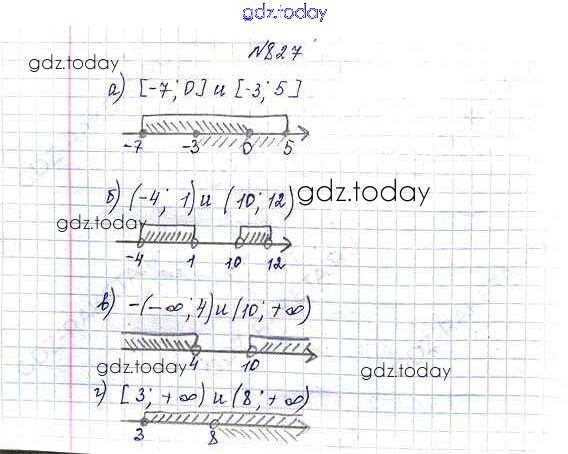 gdz.today
№827
gdz.today
а) [-7; 0] и [-3; 5]
-7 -3 0 5
б) (-4; 1) и (10; 12)
gdz.today
gdz.today
-4 1 10 12
в) -(-∞; 4) и (10; +∞)
4 10
gdz.today
gdz.today
г) [3; +∞) и (8; +∞)
3 8